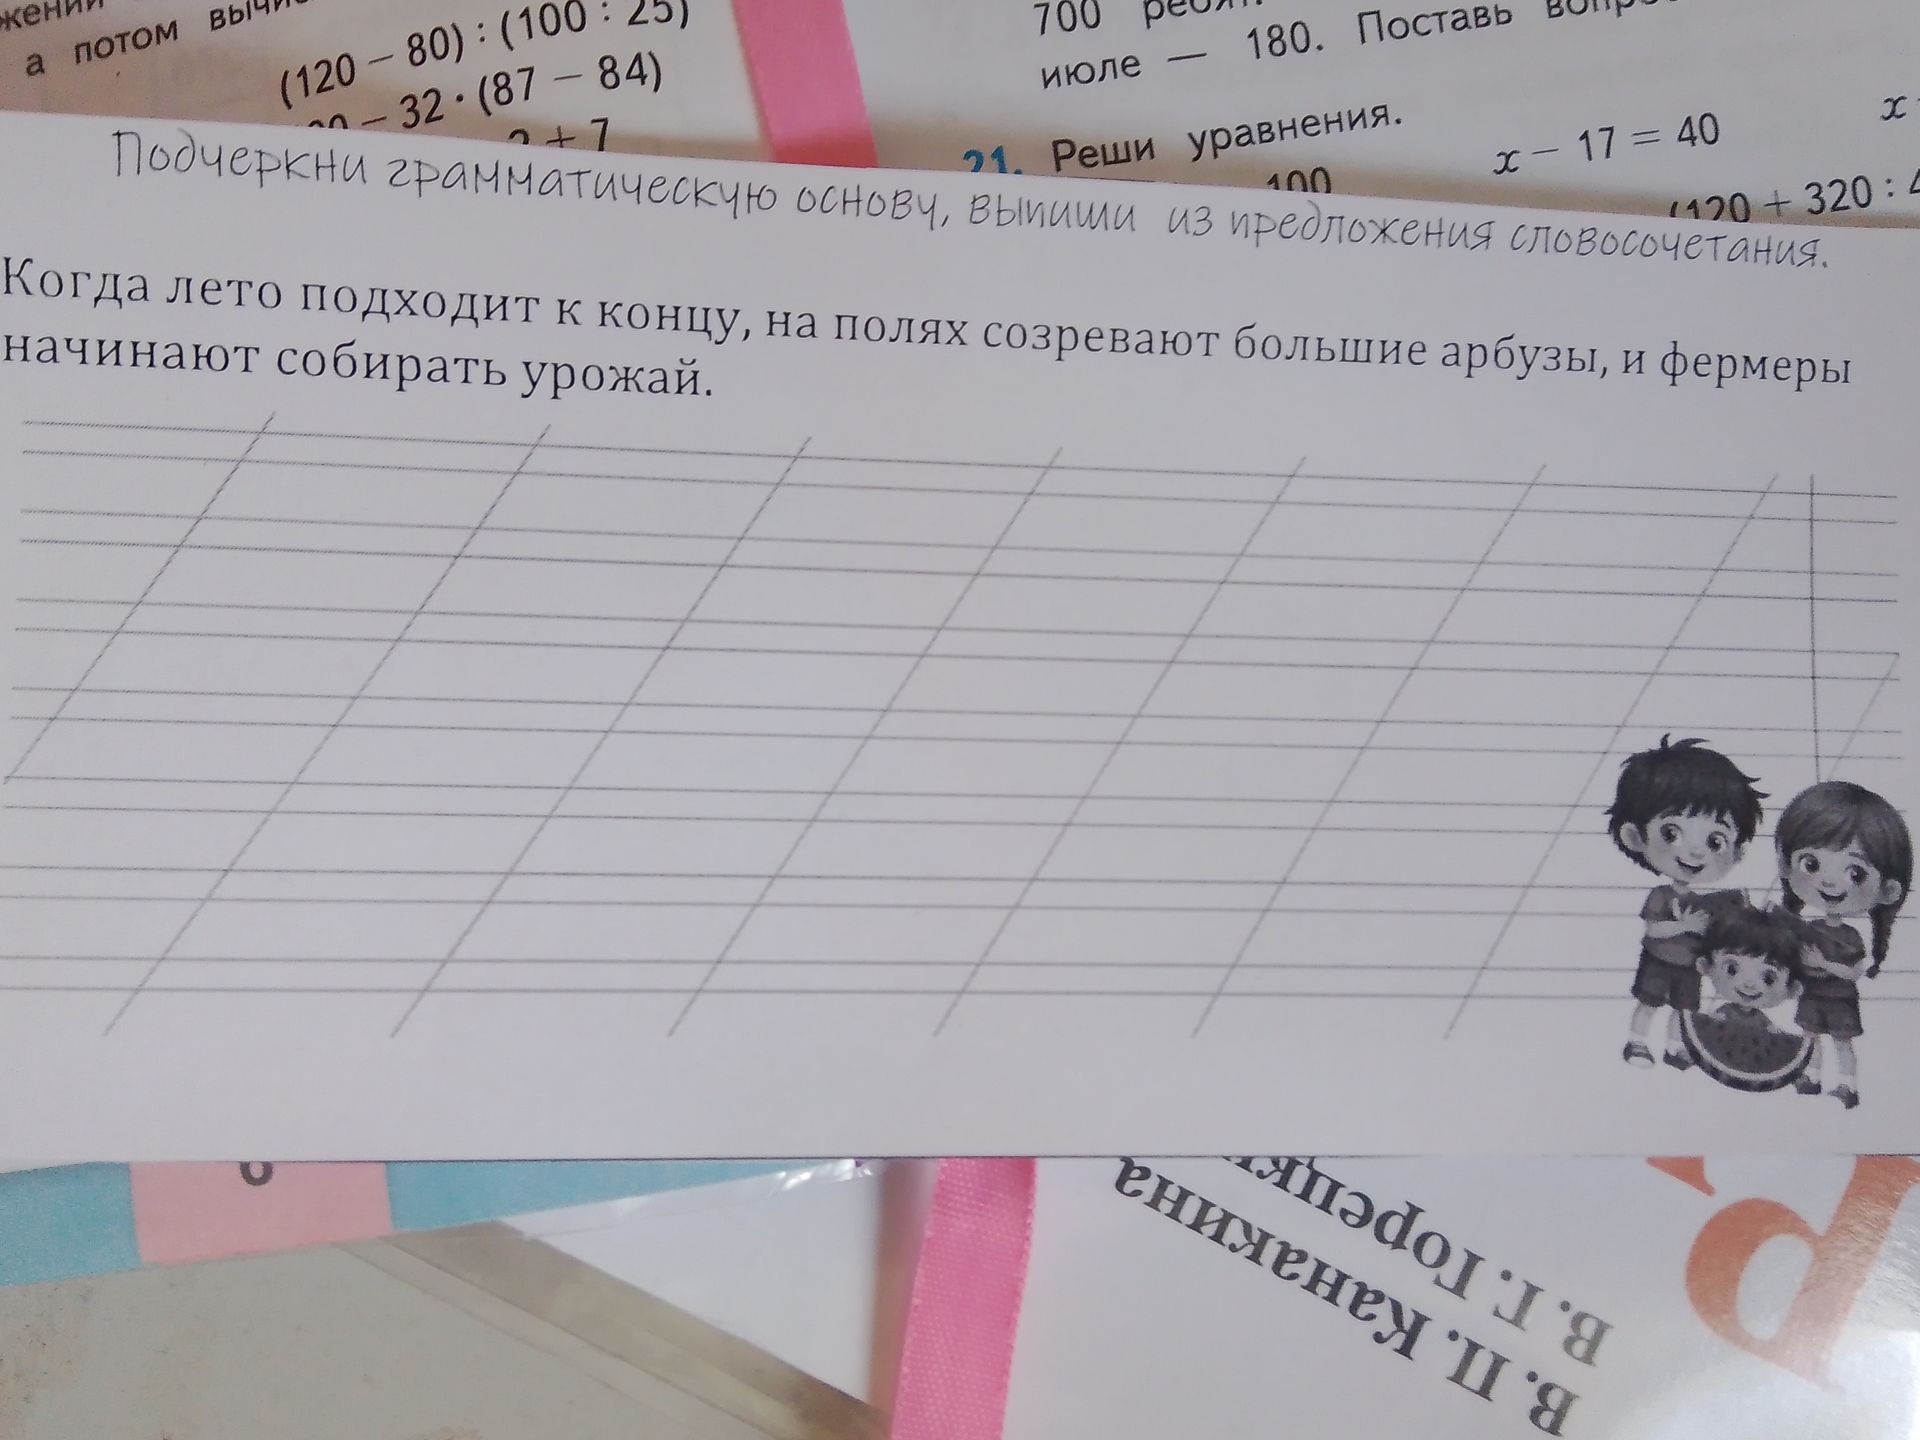 а потом
(120 – 80) : (100 : 25)
– 32 · (87 – 84)
+ 7
700
июле — 180. Поставь
21. Реши уравнения.
x – 17 = 40
x
100
(120 + 320 :
Подчеркни грамматическую основу, выпиши из предложения словосочетания.
Когда лето подходит к концу, на полях созревают большие арбузы, и фермеры
начинают собирать урожай.
В. П. Канакина
В. Г.
Р